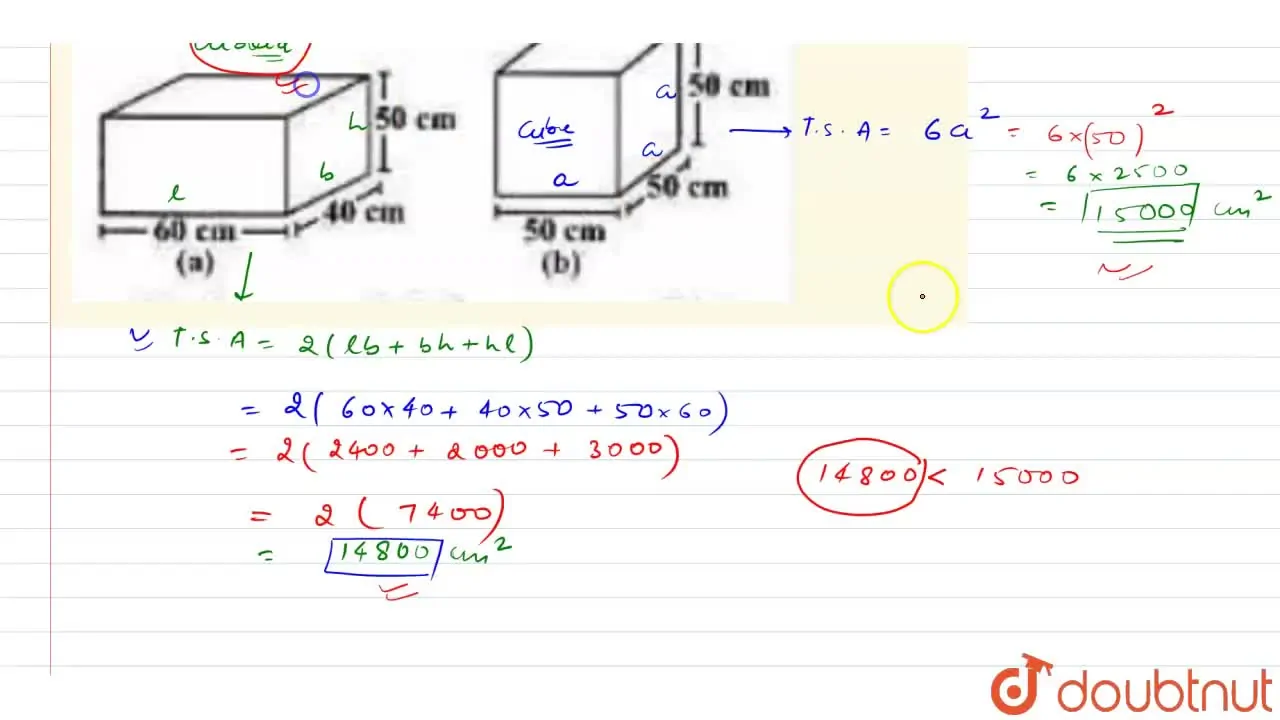 h 50 cm
b
l
40 cm
60 cm
(a)
cube
a 50 cm
a
a
50 cm
50 cm
(b)
T.S.A = 6a² = 6×(50)²
= 6×2500
= 15000 cm²
T.S.A = 2(lb+bh+hl)
= 2(60×40+ 40×50+50×60)
= 2(2400+ 2000+ 3000)
= 2(7400)
= 14800 cm²
14800 < 15000
doubtnut